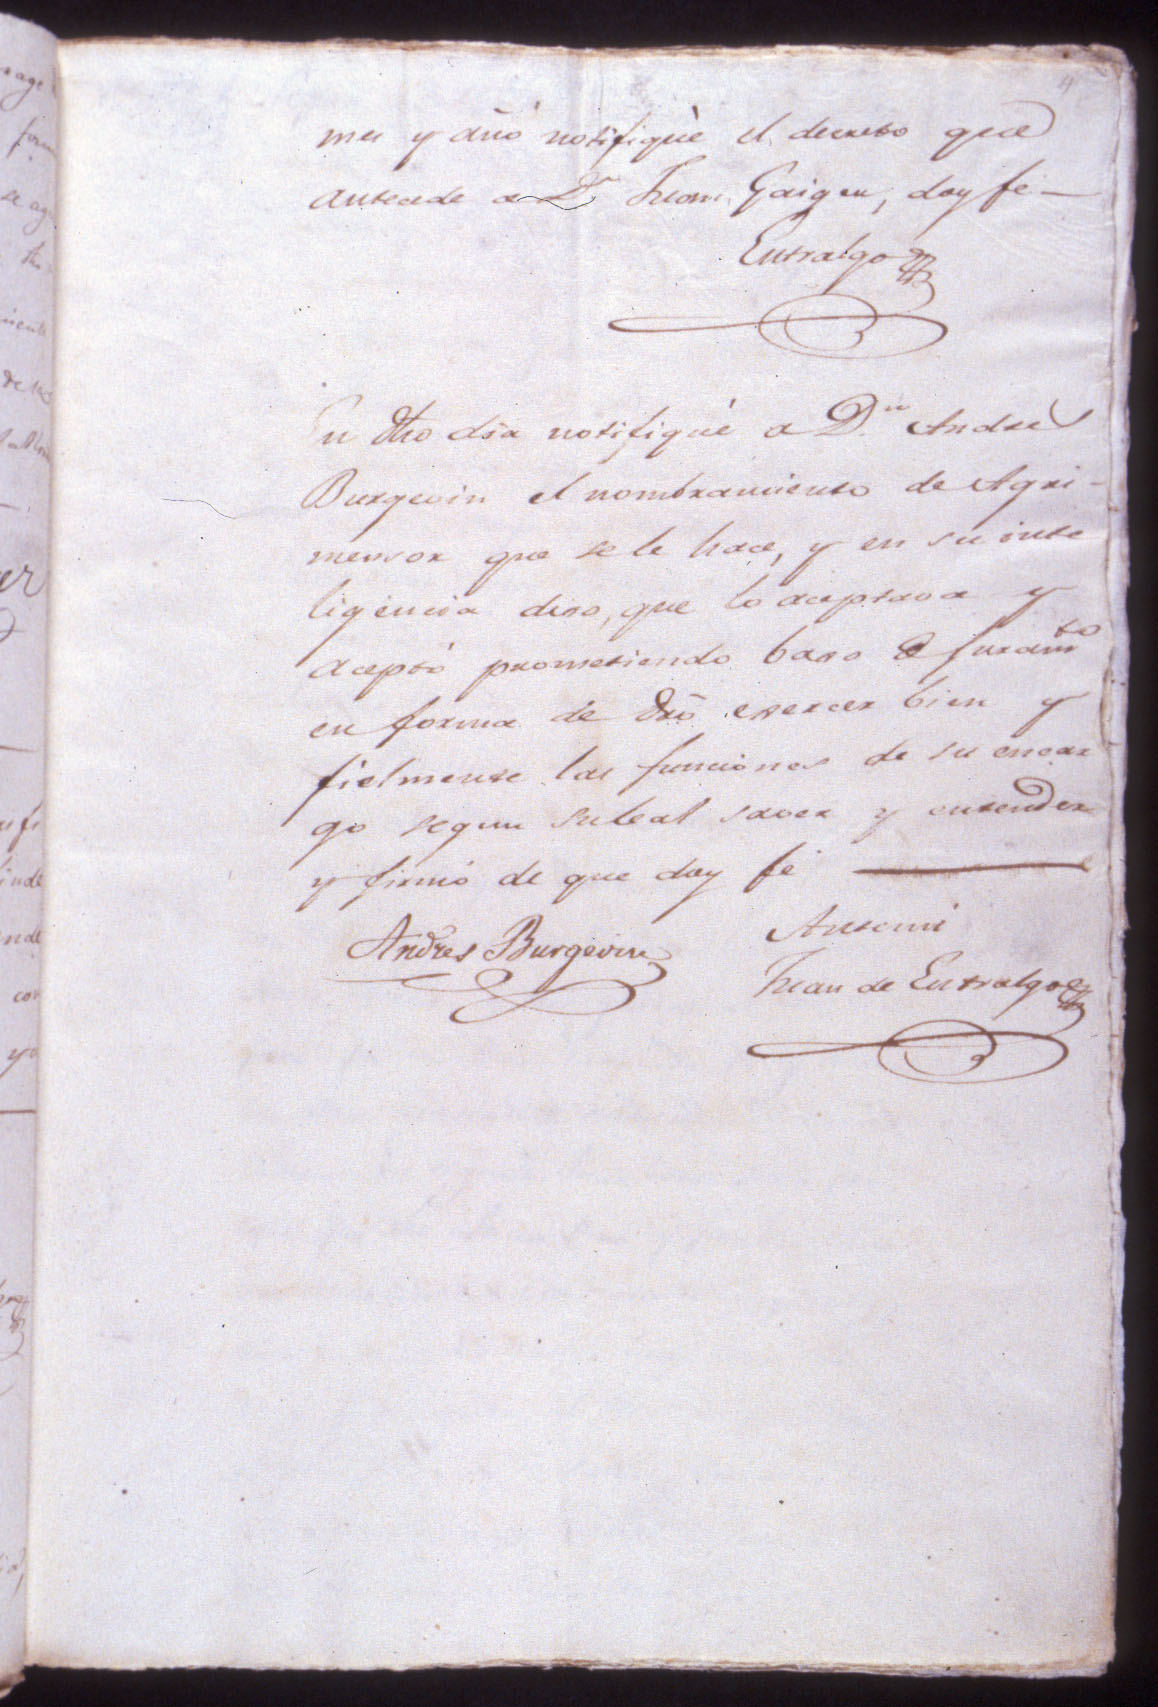 4
mes y año notifiquè el decreto que
antecede a Dn Juan Gaigen, doy fé —
Entralgo
En dho dia notifiqué a Dn. Andrés
Burgevin el nombramiento de Agri-
mensor que se le hace, y en su inte
ligencia dixo, que lo aceptava y
aceptó prometiendo baxo de juramto
en forma de dro exercer bien y
fielmente las funciones de su encar
go segun su leal saver y entender
y firmó de que doy fé
Andres Burgevin
Antemi
Juan de Entralgo